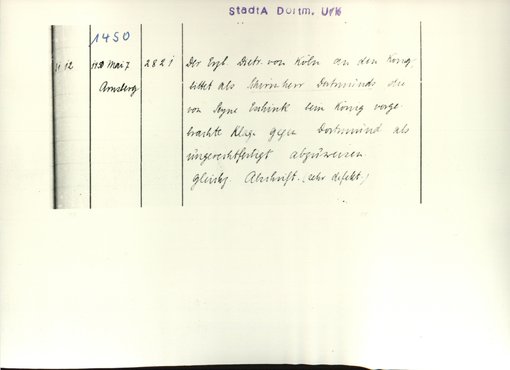 StadtA Dortm. Urk
1450
12 1450 Mai 7 2821 Der Erzb. Dietr. von Köln an den König
Arnsberg bittet als Schirmherr Dortmunds die
von Seyne Eschink dem König vorge-
brachte Klage gegen Dortmund als
ungerechtfertigt abzuweisen.
gleichz. Abschrift. (sehr defekt)